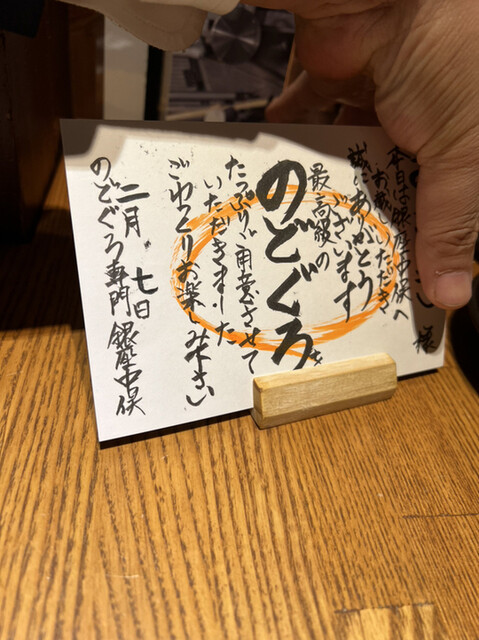 様
本日は銀座中俣へ
お越しいただき
誠にありがとう
ございます
最高級の
のどぐろを
たっぷり用意させて
いただきました
ごゆっくりお楽しみ下さい
二月七日
のどぐろ専門 銀座中俣